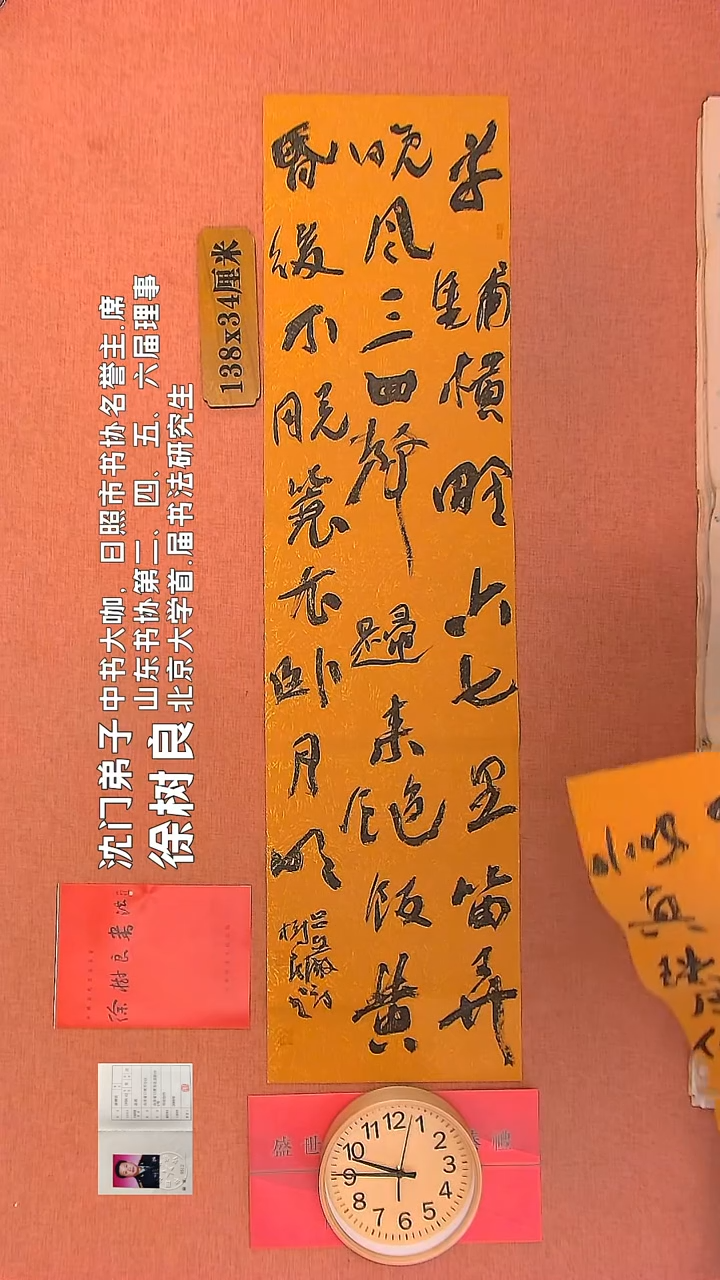 草鋪橫野六七里笛弄
晚風三四聲歸来飽飯黄
昏後不脱蓑衣卧月明
138x34厘米
沈门弟子 中书大咖，日照市书协名誉主.席
山东书协第二、四、五、六届理事
徐树良 北京大学首.届书法研究生
徐樹良書法
盛世
禮
12 1 2 3 4 5 6 7 8 9 10 11